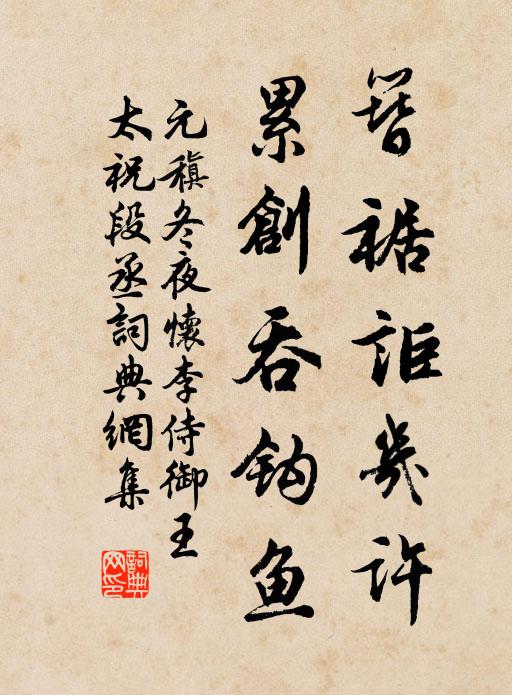 簪裾詎幾許
累創吞鉤魚
元稹冬夜懷李侍御王
太祝段丞詞典網集
詞典网印